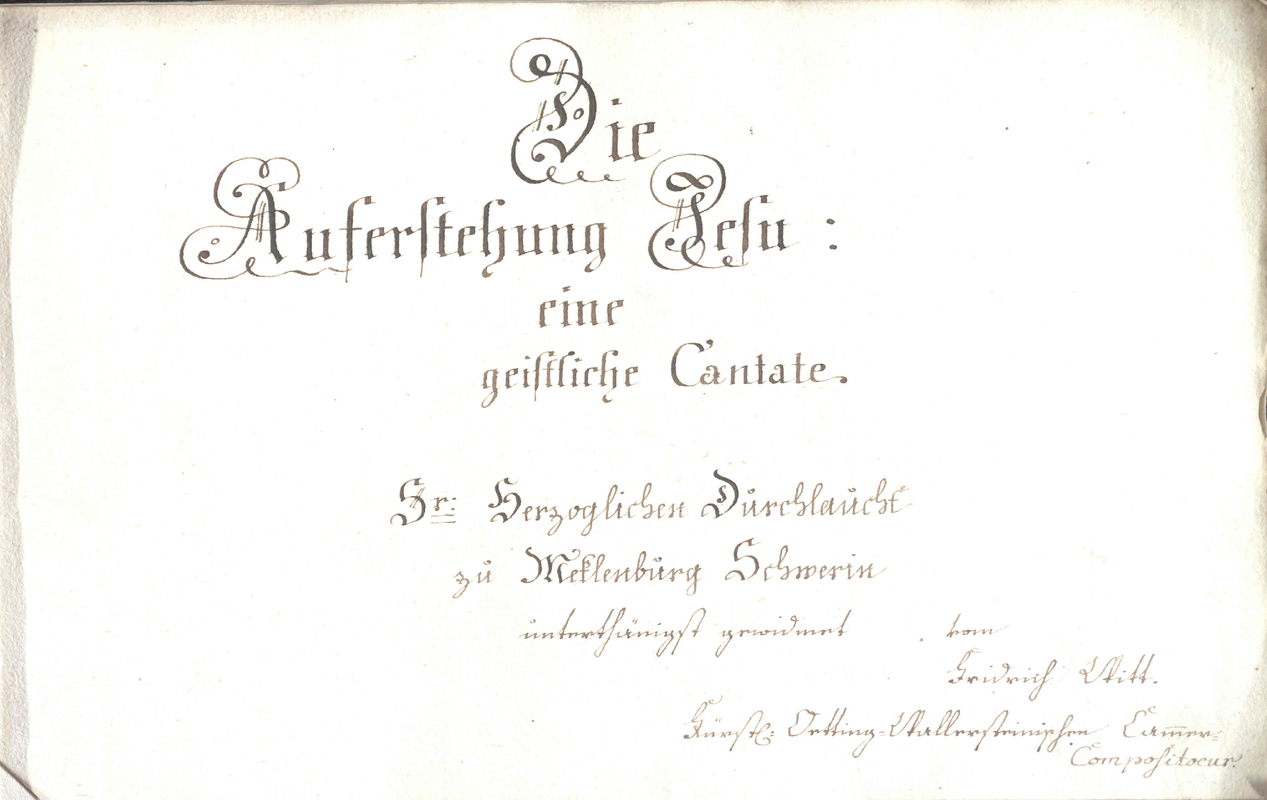 Die
Auferstehung Jesu :
eine
geistliche Cantate.
Sr: Herzoglichen Durchlaucht
zu Meklenburg Schwerin
unterthänigst gewidmet vom
Fridrich Witt.
Fürstl: Oetting=Wallersteinischen Cam̅er=
Compositeur.